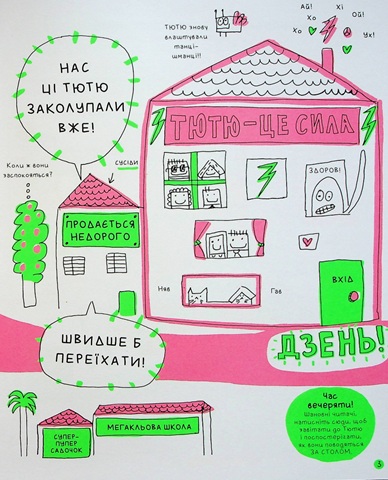 ТЮТЮ знову
влаштували
танці-
шманці!!
Ай!
Хі
Хо
Ой!
Хо
Ух!
НАС
ЦІ ТЮТЮ
ЗАКОЛУПАЛИ
ВЖЕ!
ТЮТЮ-ЦЕ СИЛА
Коли ж вони
заспокояться?
СУСІДИ
ЗДОРОВІ
ПРОДАЄТЬСЯ
НЕДОРОГО
ВХІД
Няв
Гав
ШВИДШЕ Б
ПЕРЕЇХАТИ!
ДЗЕНЬ!
Час
вечеряти!
Шановні читачі,
натисніть сюди, щоб
завітати до Тютю
і поспостерігати,
як вони поводяться
ЗА СТОЛОМ.
СУПЕР-
ПУПЕР
САДОЧОК
МЕГАКЛЬОВА ШКОЛА
3